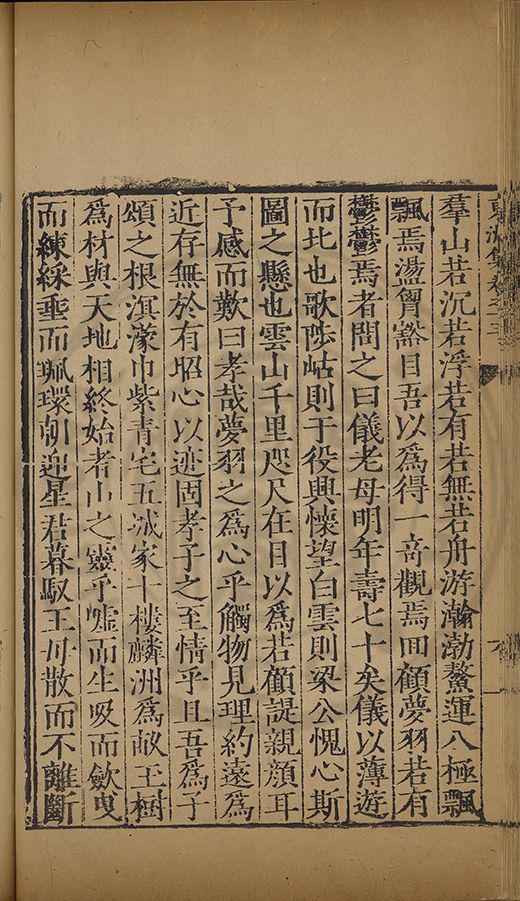 羣山若沉若浮若有若無若舟游瀚渤鰲運八極飄
飄焉盪胷豁目吾以爲得一奇觀焉囬顧夢羽若有
鬱鬱焉者問之曰儀老母明年壽七十矣儀以薄遊
而北也歌陟岵則于役興懷望白雲則梁公愧心斯
圖之懸也雲山千里咫尺在目以爲若顧諟親顔耳
予感而歎曰孝哉夢羽之爲心乎觸物見理約遠爲
近存無於有昭心以迹固孝子之至情乎且吾爲子
頌之根溟濛巾紫青宅五城家十樓麟洲爲敵玉樹
爲材與天地相終始者山之靈乎噓而生吸而歛曳
而練綵垂而珮環朝迎星君暮馭王母散而不離斷